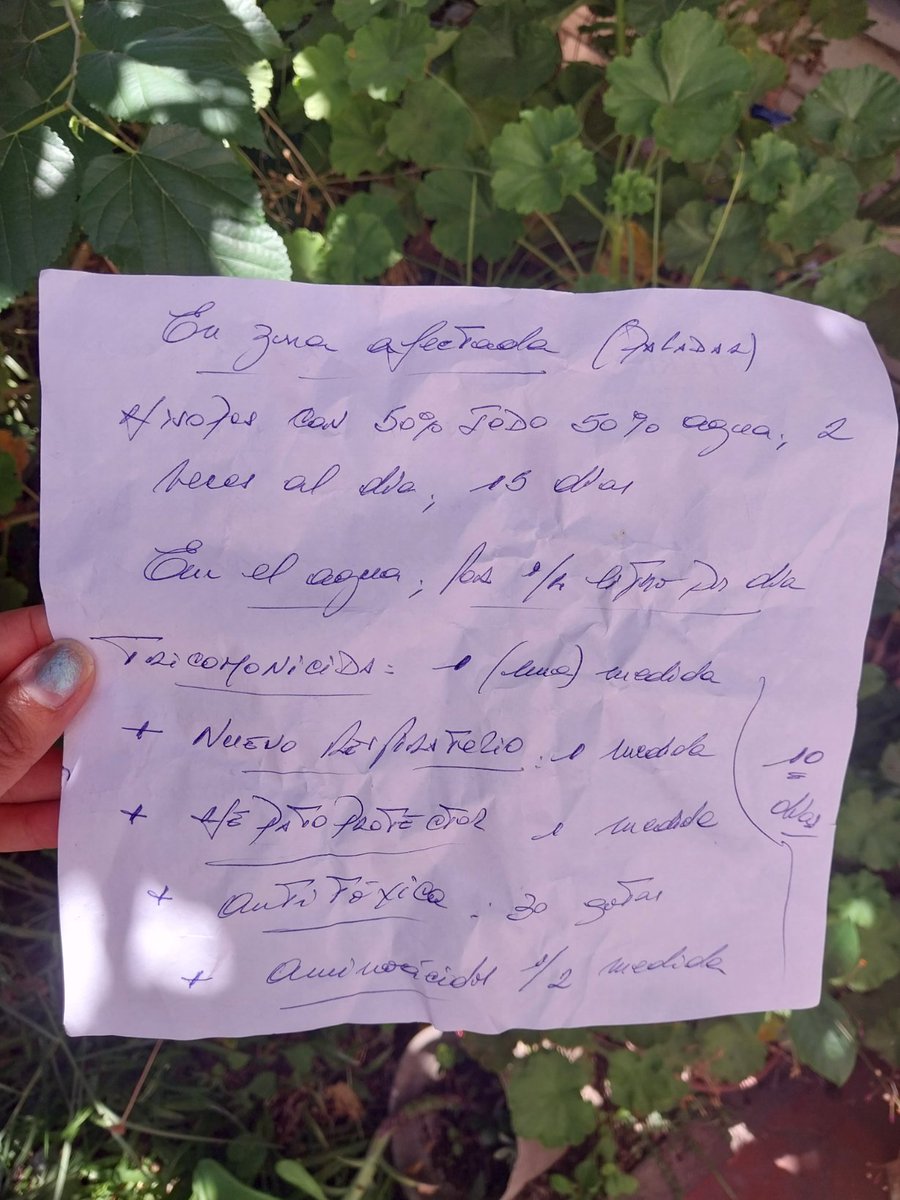 En zona afectada (PALADAR)
Hisopos con 50% Iodo 50% agua, 2
veces al día, 15 días
En el agua, por 1/2 litro por día
TRICOMONICIDA: 1 (una) medida
+ NUEVO RESPIRATORIO: 1 medida
+ HEPATOPROTECTOR 1 medida
+ antitóxica: 30 gotas
+ aminoácidos 1/2 medida
10
días